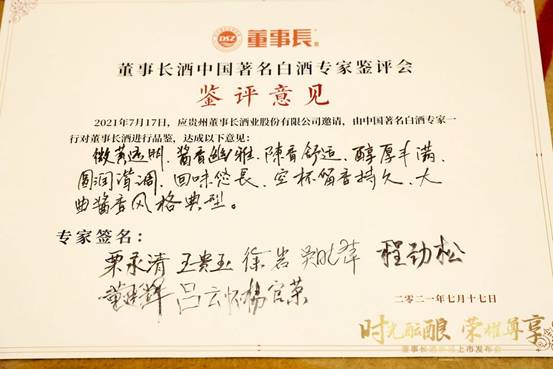 DSZ 董事長
董事长酒中国著名白酒专家鉴评会
鉴评意见
2021年7月17日，应贵州董事长酒业股份有限公司邀请，由中国著名白酒专家一
行对董事长酒进行品鉴，达成以下意见：
微黄透明、酱香幽雅、陈香舒适、醇厚丰满、
圆润谐调、回味悠長、空杯留香持久、大
曲酱香风格典型。
专家签名：
栗永清 王贵玉 徐岩 程劲松
吕云怀 杨官荣
二〇二一年七月十七日
时光酝酿 荣耀尊享
董事长酒 上市发布会